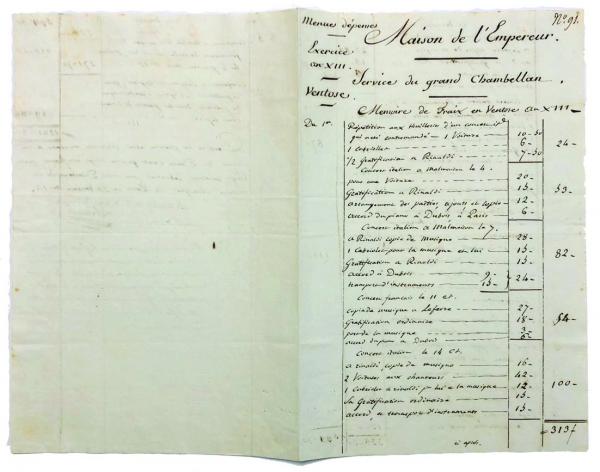 N° 91.
Menues dépenses
Exercice
an XIII.
Ventose.
Maison de l'Empereur.
Service du grand Chambellan.
Memoire de Fraix en Ventose an XIII
Du 1er
Répétition aux thuilleries d'un concert
qui a été contremandé 1 Voiture 10-50
1 Cabriolet 6-
1/2 Gratification a Rinaldi 7-50 24-
Concert italien a Malmaison le 4.
pour une Voiture 20-
Gratification a Rinaldi 15-
arrangement des parties, ajouts et copie 12-
accord du piano a Dubois à Paris 6- 53-
Concert italien a Malmaison le 7.
a Rinaldi copie de musique 28-
1 Cabriolet pour la musique et lui 15-
Gratification a Rinaldi 15-
accord a Dubois 9-
transport d'instruments 15- 24- 82-
Concert français le 11 ct.
copie de musique a Lefevre 27-
Gratification ordinaire 18-
port de la musique 3-
accord du piano a Dubois 6- 54-
Concert italien le 14 ct.
a rinaldi copie de musique 16-
2 Voitures aux chanteurs 42-
1 Cabriolet a rinaldi pr lui e la musique 12-
Sa Gratification ordinaire 15-
accord, e transport d'instruments 15- 100-
313f